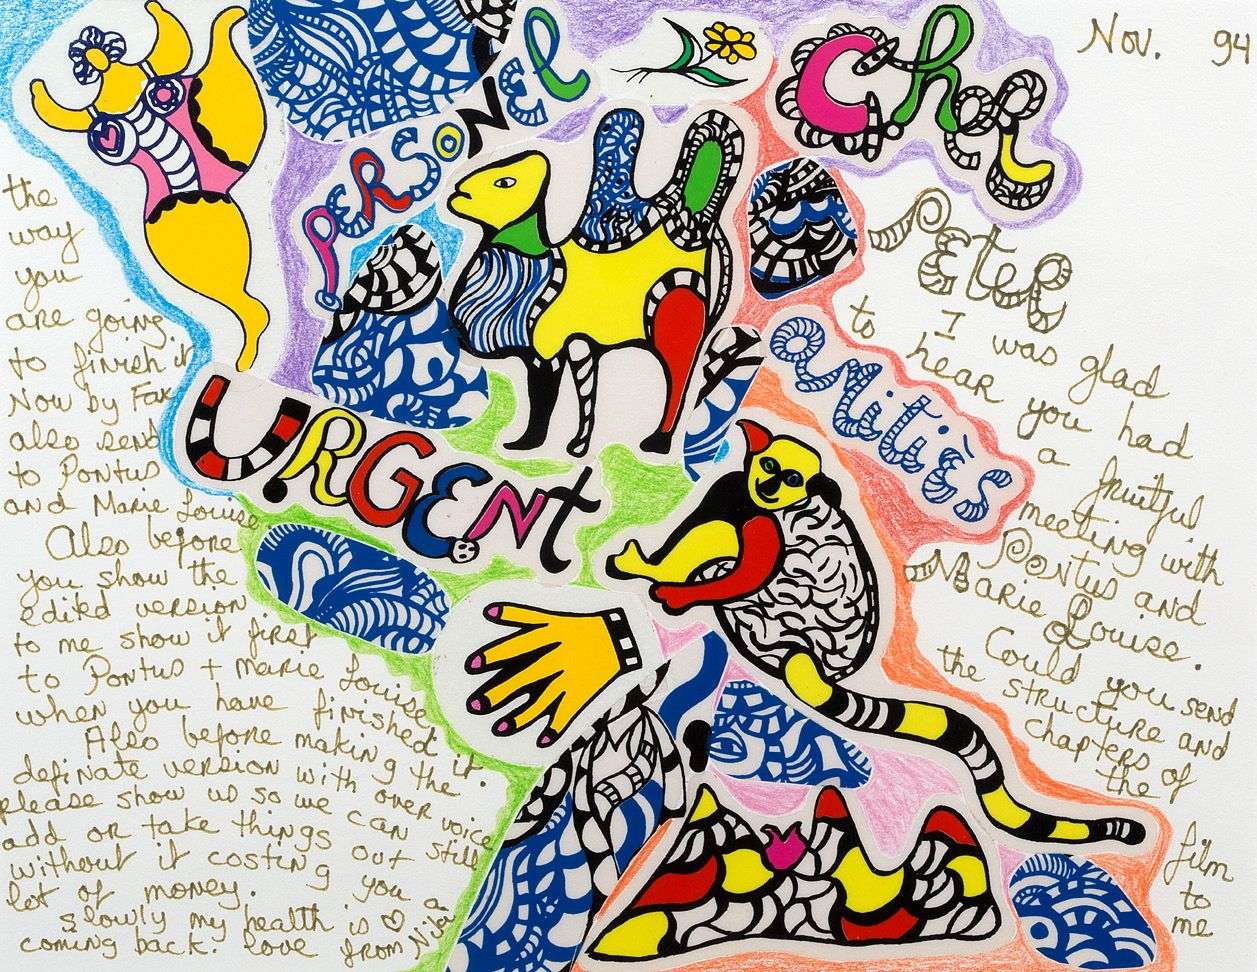 Nov. 94
PERSONEL
Cher
PETER
I was glad
to hear you had
a fruitful
meeting with
Pontus and
Marie Louise.
Could you send
the structure and
chapters of
the
film
to
me
amitiés
URGENT
the
way
you
are going
to finish it
Now by Fax
also send
to Pontus
and Marie Louise
Also before
you show the
edited version
to me show it first
to Pontus + Marie Louise
when you have finished it.
Also before making the
definate version with over voice
please show us so we can still
add or take things out
without it costing you a
lot of money.
Slowly my health is
coming back. love from Niki